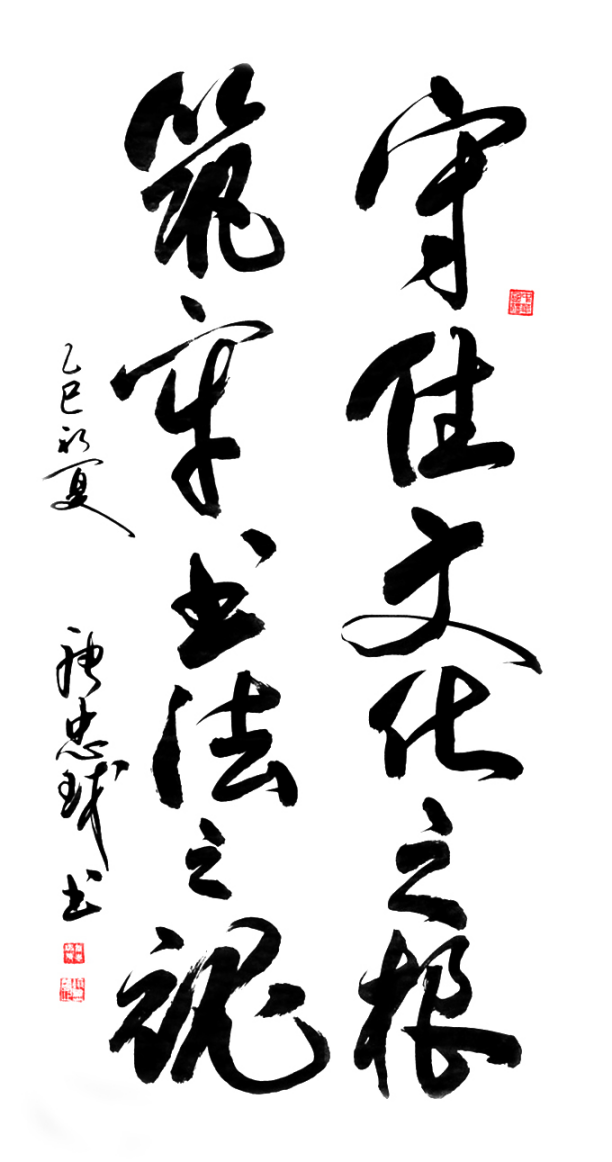 守住文化之根
筑牢书法之魂
乙巳初夏 忠球书